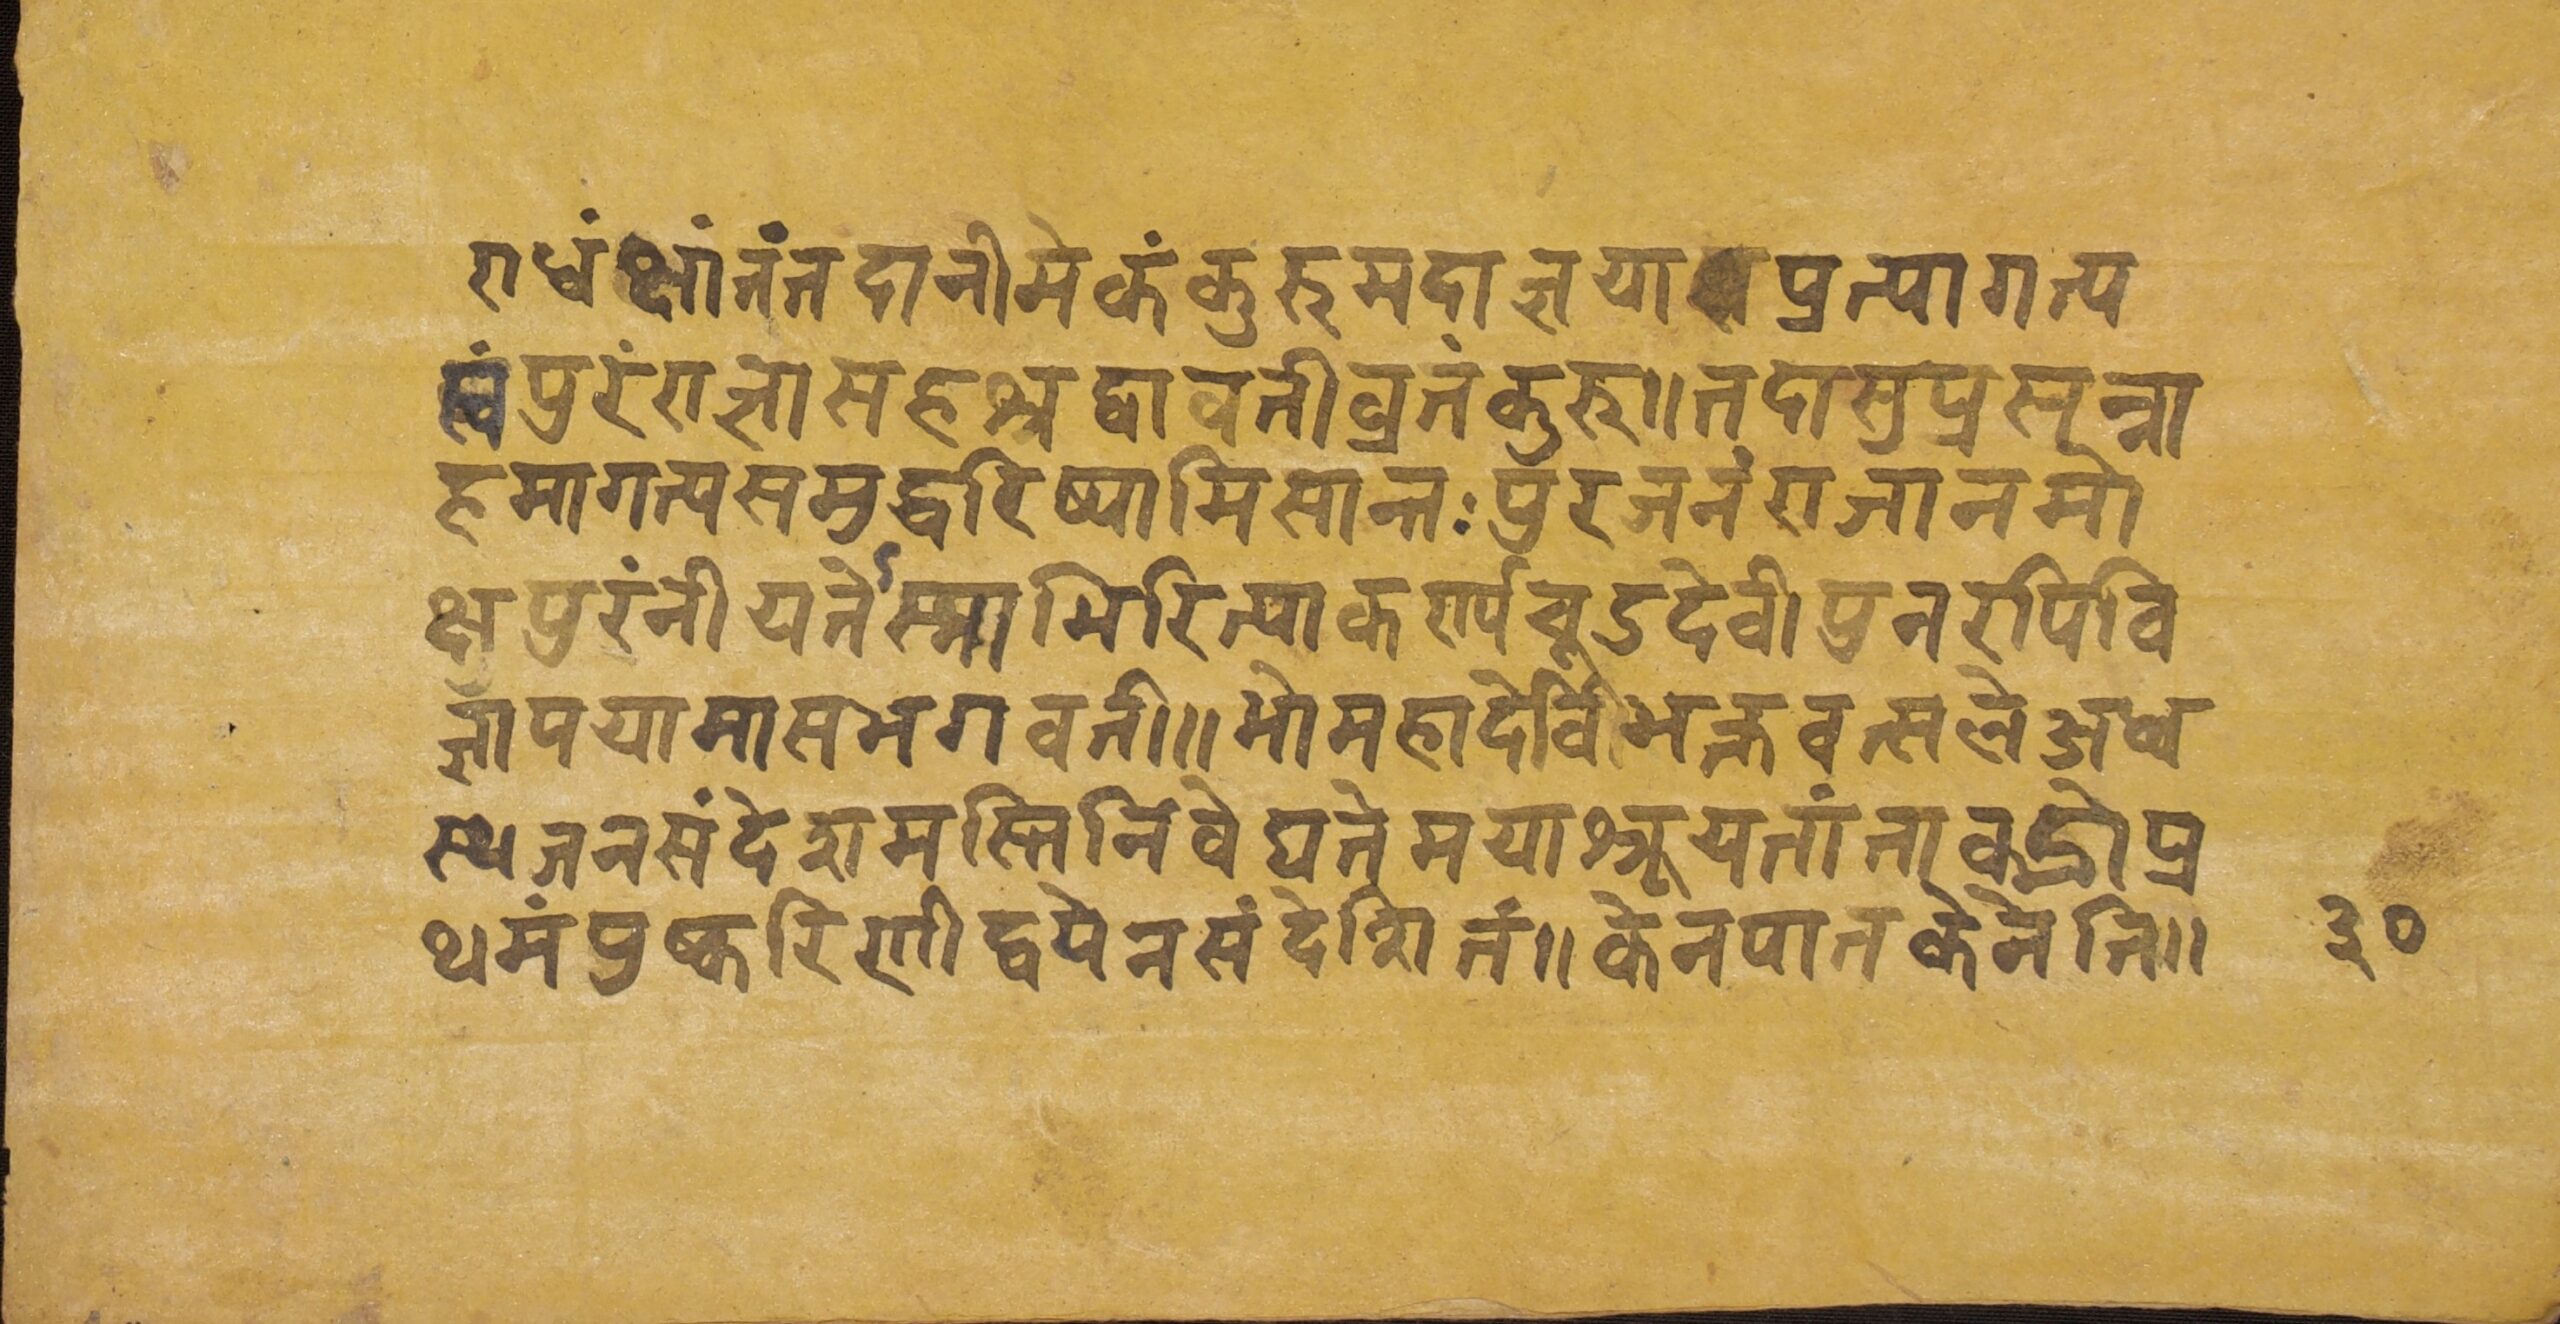 राधं क्षांतंतदानीमेकंकुरुमदाज्ञया प्रत्यागत्य
स्वंपुरंराज्ञासहश्चद्वावतीव्रतंकुरु॥तदासुप्रसन्ना
हमागत्यसमुद्धरिष्यामिसान्तःपुरजनंराजानमो
क्षपुरंनीयतेऽस्माभिरित्याकर्ण्यचूडदेवीपुनरपिवि
ज्ञापयामासभगवती॥भोमहादेविभक्तवत्सलेअध्व
स्थजनसंदेशमस्तिनिवेद्यतेमयाश्रूयतांतावद्भोप्र
थमंपुष्करिणीद्वयेनसंदेशितं॥केनपातकेनेति॥ ३०